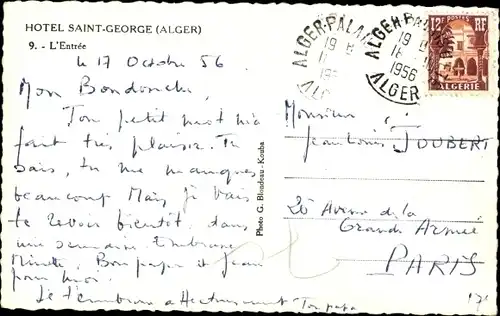 HOTEL SAINT-GEORGE (ALGER)
9. - L'Entrée
le 17 Octobre 56
Mon
Ton petit mot m'a
fait très plaisir. Tu
sais, tu me manques
beaucoup Mais je vais
te revoir bientôt. dans
une semaine. Embrasse
Bon papa et Jean
pour moi.
Je t'embrasse affectueusement Ton papa
Photo G. Blondeau-Kouba
ALGER-PALAIS
19 H
ALGER
ALGER-PALAIS
19 H
18
1956
ALGER
12F POSTES RF
ALGERIE
Monsieur
Jean Louis JOUBERT
Avenue de la
Grande Armée
PARIS